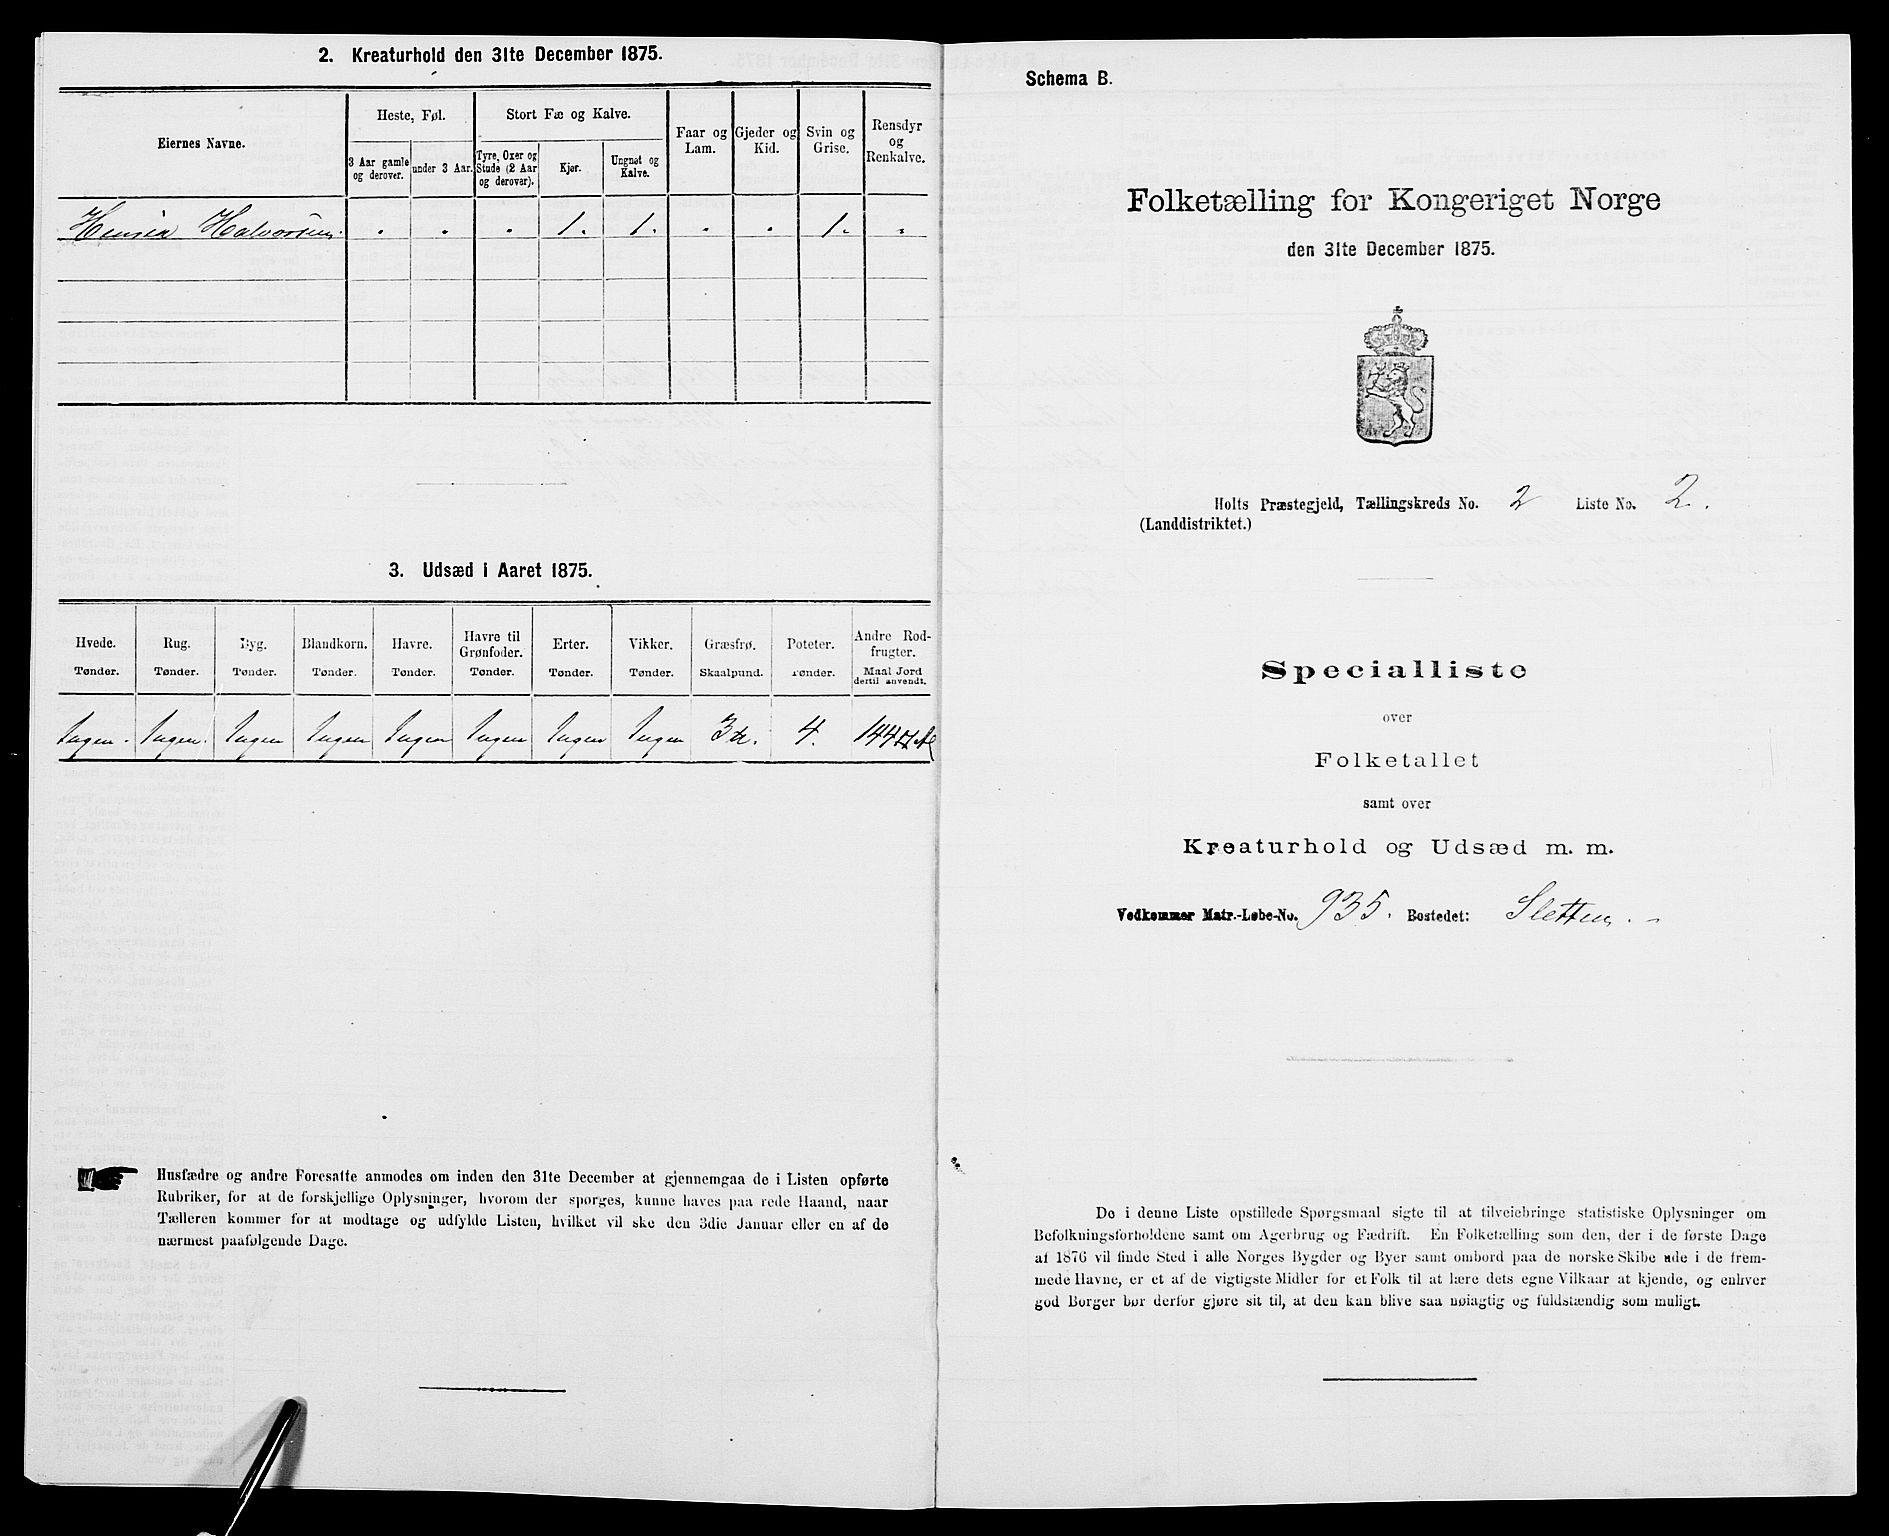 2. Kreaturhold den 31te December 1875.
Eiernes Navne.
Heste, Føl.
Stort Fæ og Kalve.
3 Aar gamle og derover.
under 3 Aar.
Tyre, Oxer og Stude (2 Aar og derover).
Kjør.
Ungnøt og Kalve.
Faar og Lam.
Gjeder og Kid.
Svin og Grise.
Rensdyr og Renkalve.
Halvorsen . . . 1. 1. . . 1. .
3. Udsæd i Aaret 1875.
Hvede. Rug. Byg. Blandkorn. Havre. Havre til Grønfoder. Erter. Vikker. Græsfrø. Poteter. Andre Rodfrugter.
Tønder. Tønder. Tønder. Tønder. Tønder. Tønder. Tønder. Tønder. Skaalpund. Tønder. Maal Jord dertil anvendt.
Ingen. Ingen. Ingen Ingen Ingen Ingen Ingen Ingen 3 4. 144
Husfædre og andre Foresatte anmodes om inden den 31te December at gjennemgaa de i Listen opførte
Rubriker, for at de forskjellige Oplysninger, hvorom der spørges, kunne haves paa rede Haand, naar
Tælleren kommer for at modtage og udfylde Listen, hvilket vil ske den 3die Januar eller en af de
nærmest paafølgende Dage.
Schema B.
Folketælling for Kongeriget Norge
den 31te December 1875.
Holts Præstegjeld, Tællingskreds No. 2 Liste No. 2.
(Landdistriktet.)
Specialliste
over
Folketallet
samt over
Kreaturhold og Udsæd m. m.
Vedkommer Matr.-Løbe-No. 935. Bostedet: Sletten.
De i denne Liste opstillede Spørgsmaal sigte til at tilveiebringe statistiske Oplysninger om
Befolkningsforholdene samt om Agerbrug og Fædrift. En Folketælling som den, der i de første Dage
af 1876 vil finde Sted i alle Norges Bygder og Byer samt ombord paa de norske Skibe ude i de frem-
mede Havne, er et af de vigtigste Midler for et Folk til at lære dets egne Vilkaar at kjende, og enhver
god Borger bør derfor gjøre sit til, at den kan blive saa nøiagtig og fuldstændig som muligt.